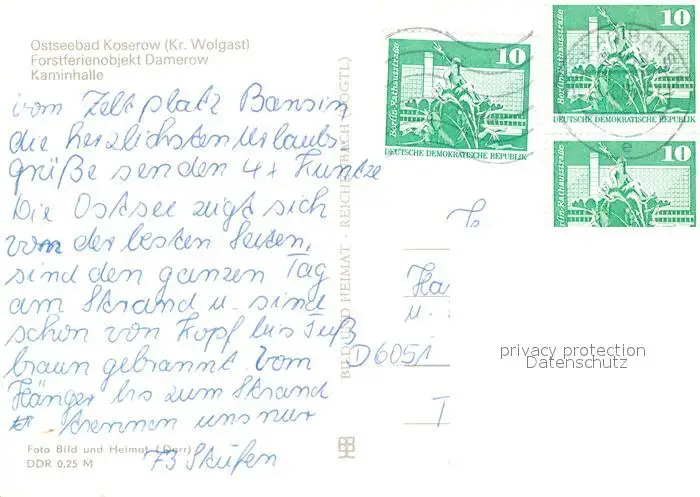 Ostseebad Koserow (Kr. Wolgast)
Forstferienobjekt Damerow
Kaminhalle
vom Zeltplatz Bansin
die herzlichsten Urlaubs
grüße senden 4x Kuntze
Die Ostsee zeigt sich
von der besten Seiten,
sind den ganzen Tag
am Strand u. sind
schon von Kopf bis Fuß
braun gebrannt. Vom
Hänger bis zum Strand
trennen uns nur
73 Stufen
Foto Bild und Heimat (Darr)
DDR 0,25 M
BILD UND HEIMAT · REICHENBACH (VOGTL)
D6051
10
Berlin-Rathausstraße
DEUTSCHE DEMOKRATISCHE REPUBLIK
10
Berlin-Rathausstraße
DEUTSCHE DEMOKRATISCHE REPUBLIK
10
Berlin-Rathausstraße
e
u.
privacy protection
Datenschutz